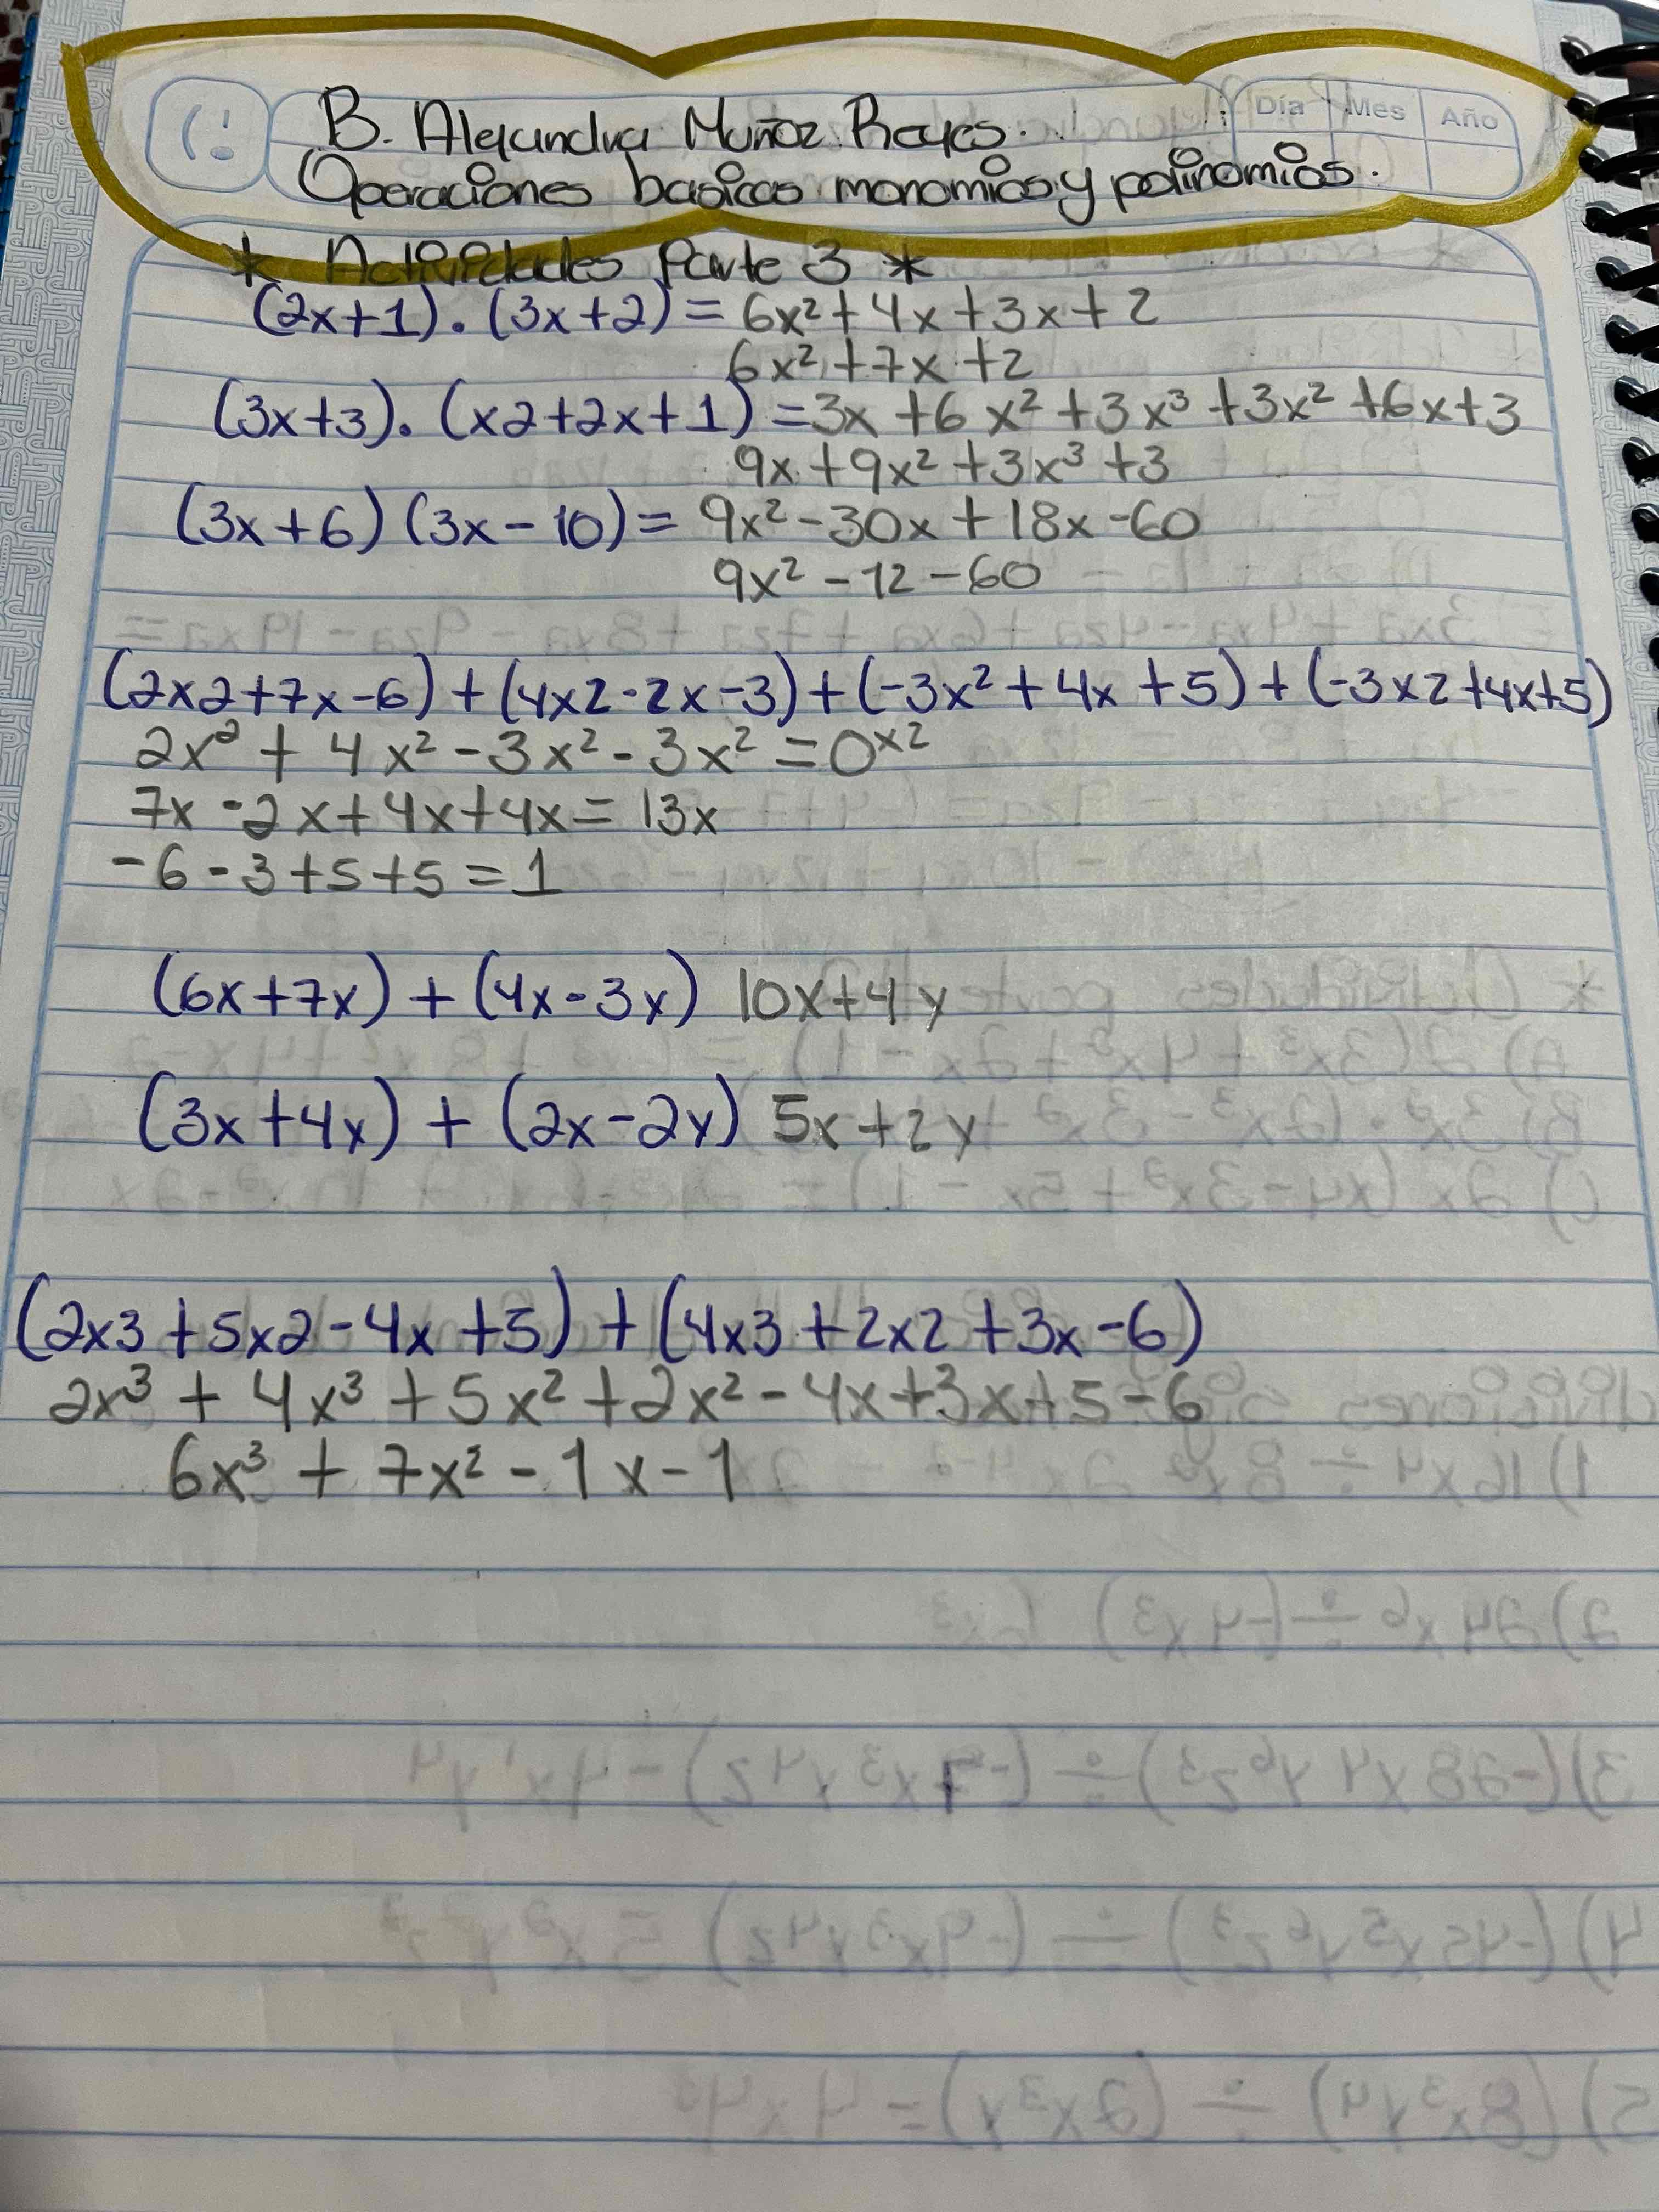 Día Mes Año
B. Alejandra Muñoz Reyes.
Operaciones basicas monomios y polinomios.
* Actividades Parte 3 *
(2x+1).(3x+2)=6x²+4x+3x+2
6x²+7x+2
(3x+3).(x2+2x+1)=3x+6x²+3x³+3x²+6x+3
9x+9x²+3x³+3
(3x+6)(3x-10)=9x²-30x+18x-60
9x²-12-60
(2x2+7x-6)+(4x2-2x-3)+(-3x²+4x+5)+(-3x2+4x+5)
2x²+4x²-3x²-3x²=0x2
7x-2x+4x+4x=13x
-6-3+5+5=1
(6x+7x)+(4x-3x) 10x+4y
(3x+4x)+(2x-2y) 5x+2y
(2x3+5x2-4x+5)+(4x3+2x2+3x-6)
2x³+4x³+5x²+2x²-4x+3x+5-6
6x³+7x²-1x-1